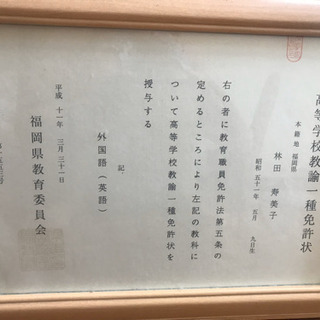 高等学校教諭一種免許状
本籍地 福岡県
林田 寿美子
昭和 五十一年 五月 九日生
右の者に教育職員免許法第五条の
定めるところにより左記の教科に
ついて高等学校教諭一種免許状を
授与する
記
外国語（英語）
平成 十一年 三月 三十一日
福岡県教育委員会